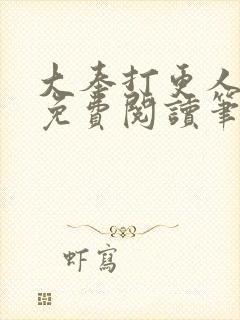 大奉打更人
免費閱讀筆
虾寫